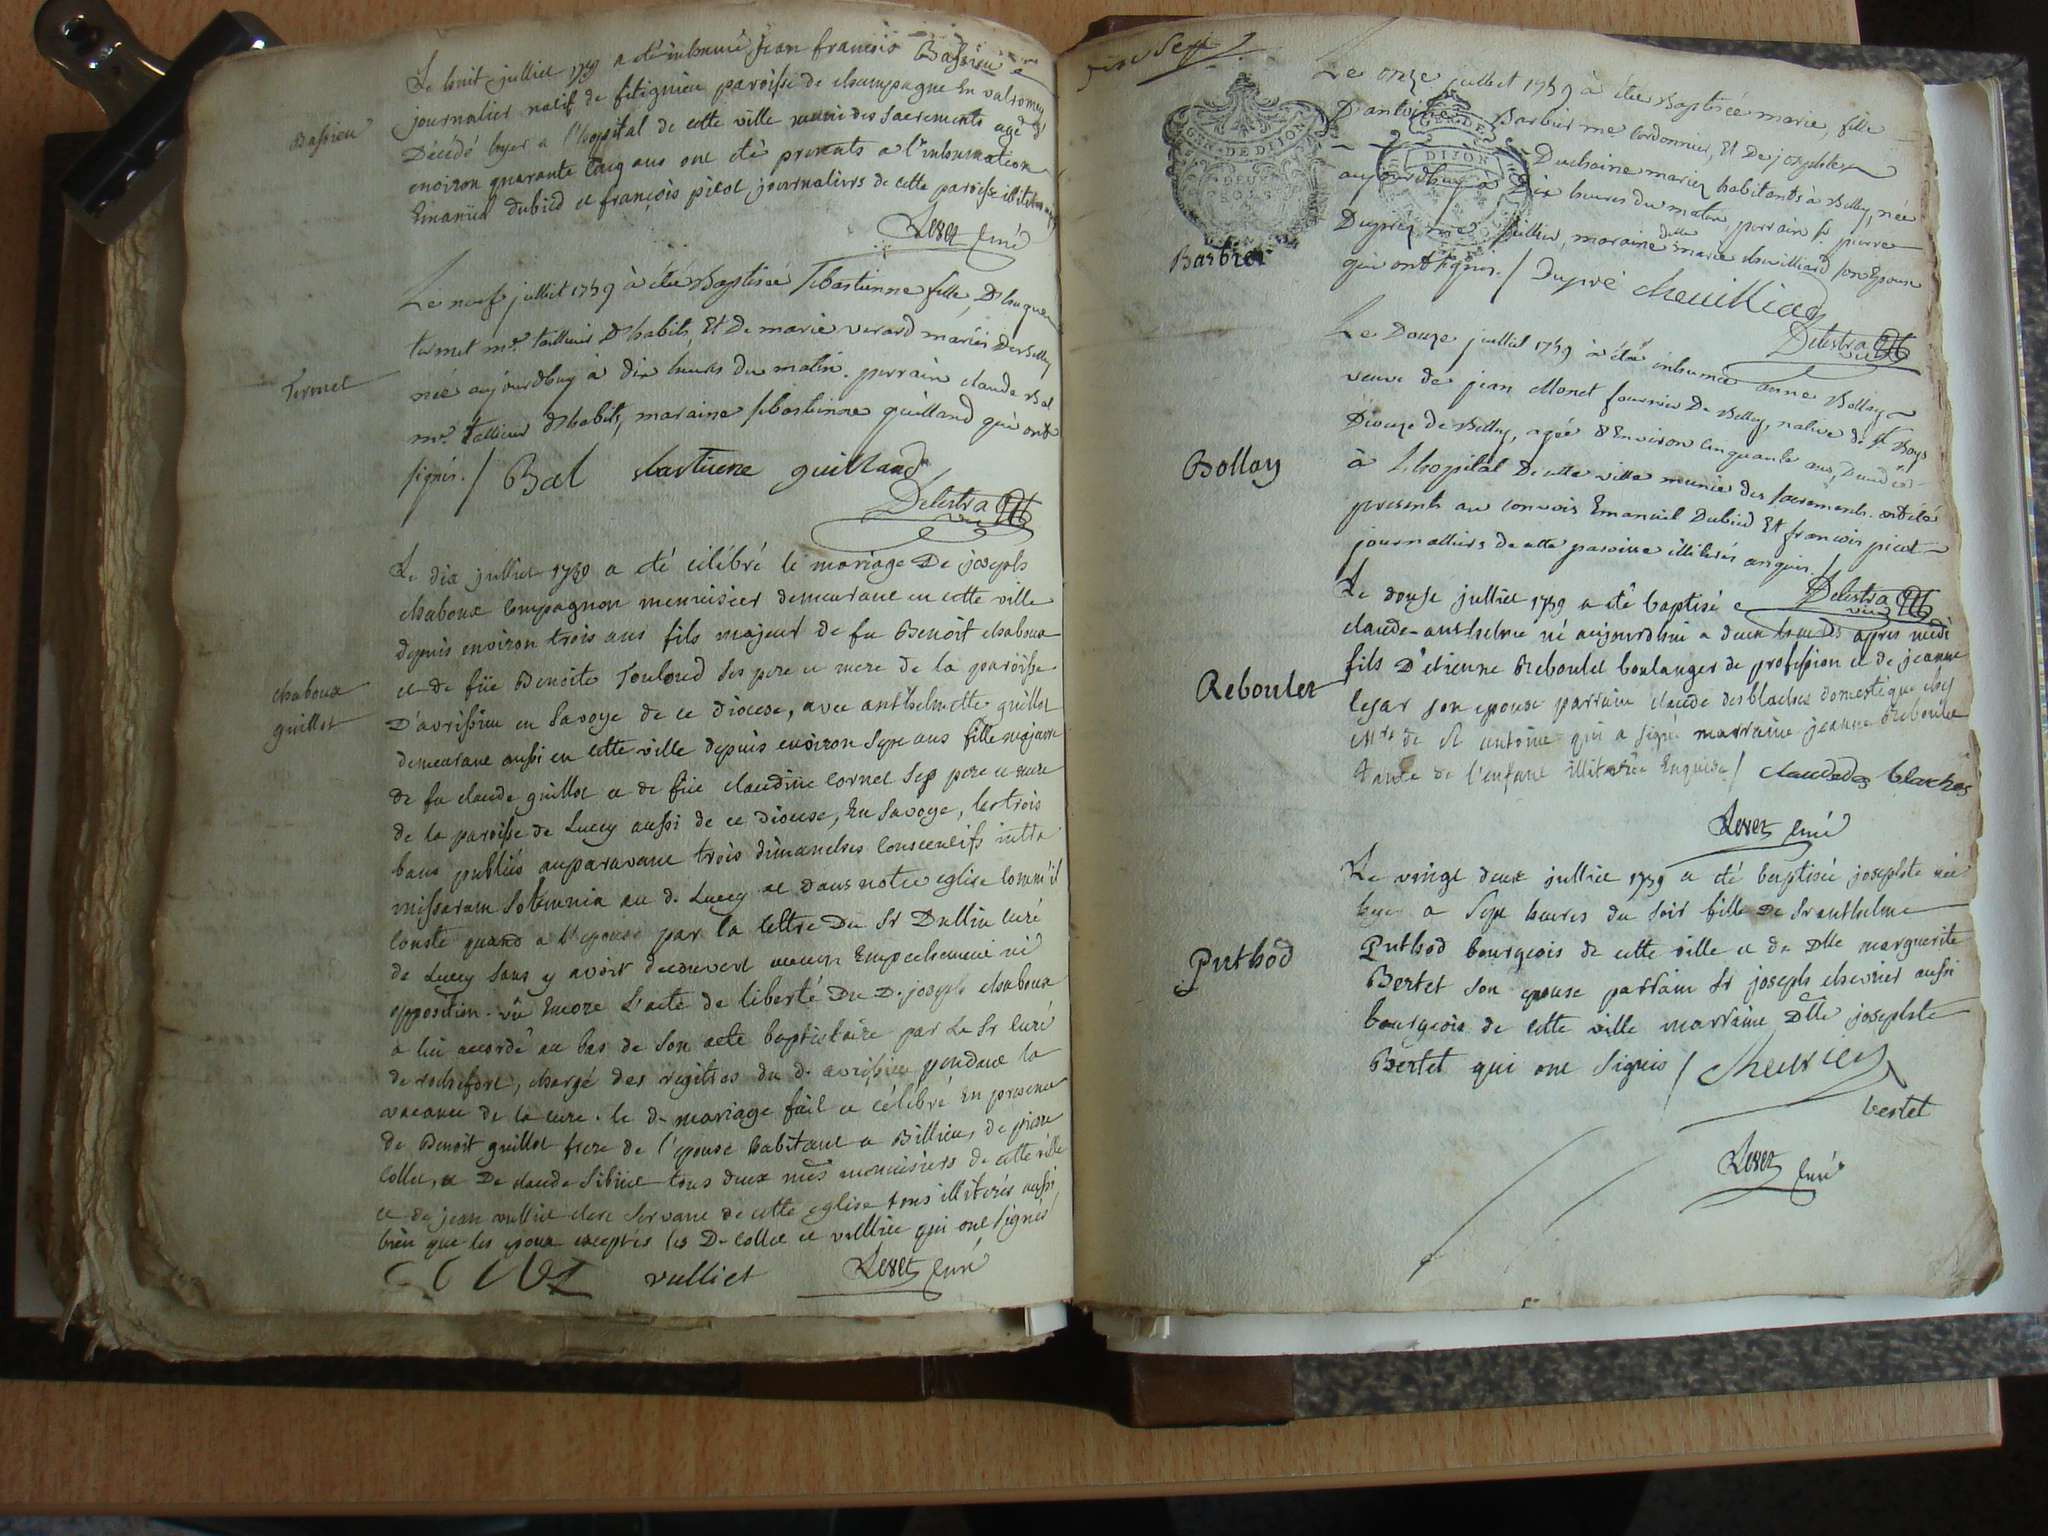 Bassieu
Le huit julliet 1759 a eté inhumé jean francois Bassieu
journalier natif de fitignieu paroisse de champagne En valromey
Décédé hyer a l'hopital de cette ville muni des Sacrements agé d'
environ quarante Cinq ans ont été presents a l'inhumation
Emanüel dubied et françois picot journaliers de cette paroisse
Revet Curé
Termet
Le neuf julliet 1759 à été Baptisée Sebastienne fille D'hugues
termet mre tallieur D'habits, Et De marie verard mariés De Belley
née aujourdhuy à dix heures du matin. perrain claude Bal
mre tallieur d'habits, maraine sebastienne guilland qui ont
signés. / Bal bastiene guilland
Delestra
vic
chaboux
guillot
Le dix julliet 1759 a été célébré le mariage De joseph
chaboux Compagnon menuisier demeurant en cette ville
depuis environ trois ans fils majeur de fu Benoit chaboux
et de füe Benoite Touloud Ses pere et mere de la paroisse
D'avrissieu en Savoye de ce diocese, avec anthelmette guillot
demeurant aussi en cette ville depuis environ Sept ans fille majeure
de fu claude guillot et de füe claudine Cornet Ses pere et mere
de la paroisse de Lucey aussi de ce diocese, En Savoye, les trois
bans publiés auparavant trois dimanches Consecutifs intra
missarum Solemnia au d. Lucey et dans notre eglise Comm'il
Conste quand a l'epouse par la lettre Du Sr Dullin curé
de Lucey Sans y avoir decouvert aucun Empechement ni
opposition. vû Encore L'acte de liberté Du D. joseph chaboux
a lui accordé au bas de Son acte baptistaire par Le Sr Curé
de rochefort, chargé des registres du d. avrissieu pendant la
vacance de la cure. le d. mariage fait et célébré En presence
de Benoit guillot frere de l'epouse habitant a Billieu, de pierre
Collet, et De claude Sibuet tous deux mes menuisiers de cette ville
et de jean vulliet clerc Servant de cette eglise tous illiterés aussi
bien que les epoux exceptés les D. Collet et vulliet qui ont Signés
vulliet Revet Curé
GEN. DE DIJON
DEUX
SOLS
DIJON
Barbier
Le onze juillet 1759 à été Baptisée marie, fille
D'antoine Barbier me cordonnier, Et De josephte
Duchaine mariez habitants à Belley, née
aujourdhuy a Dix heures du matin, perrain Sr pierre
Duprez me sellier, maraine delle marie chevilliard son Epouse
qui ont signés. / Dupré cheuilliard
Delestra
vic
Bollay
Le Douze juillet 1759 à été inhumée anne Bollay
veuve de jean Monet fournier De Belley, native de St Boys
Diocese de Belley, agée d'Environ cinquante ans,
à L'hopital De cette ville munie des sacrements. ont été
presents au convois Emanuel Dubied Et francois picot
journalliers de cette paroisse illiterés enquis. /
Delestra
vic
Reboulet
Le douse julliet 1759 a été baptisé
claude-anthelme né aujourdhui a deux heures apres midi
fils D'etienne Reboulet boulanger de profession et de jeanne
lesar son epouse parrain claude desblaches domestique chez
Mrs de St antoine qui a signé marraine jeanne Reboulet
tante de l'enfant illiterée Enquise / claudedes blaches
Revet Curé
Puthod
Le vingt deux julliet 1759 a été baptisée josephte née
hyer a Sept heures du soir fille de Sr anthelme
Puthod bourgeois de cette ville et de Dlle marguerite
Bertet Son epouse parrain Sr joseph chevrier aussi
bourgeois de cette ville marraine Dlle josephte
Bertet qui ont Signés / cheurier
bertet
Revet Curé